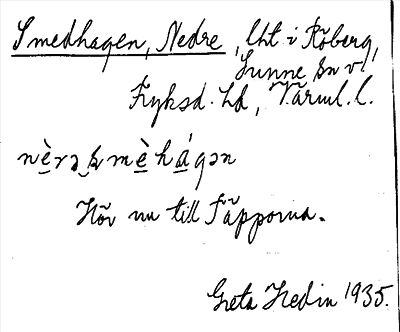 Smedhagen, Nedre, lht i Råberg,
Sunne sn v.
Fryksd. hd, Värml. l.
nèrə smèhágən
Hör nu till Täpporna.
Greta Hedin 1935.